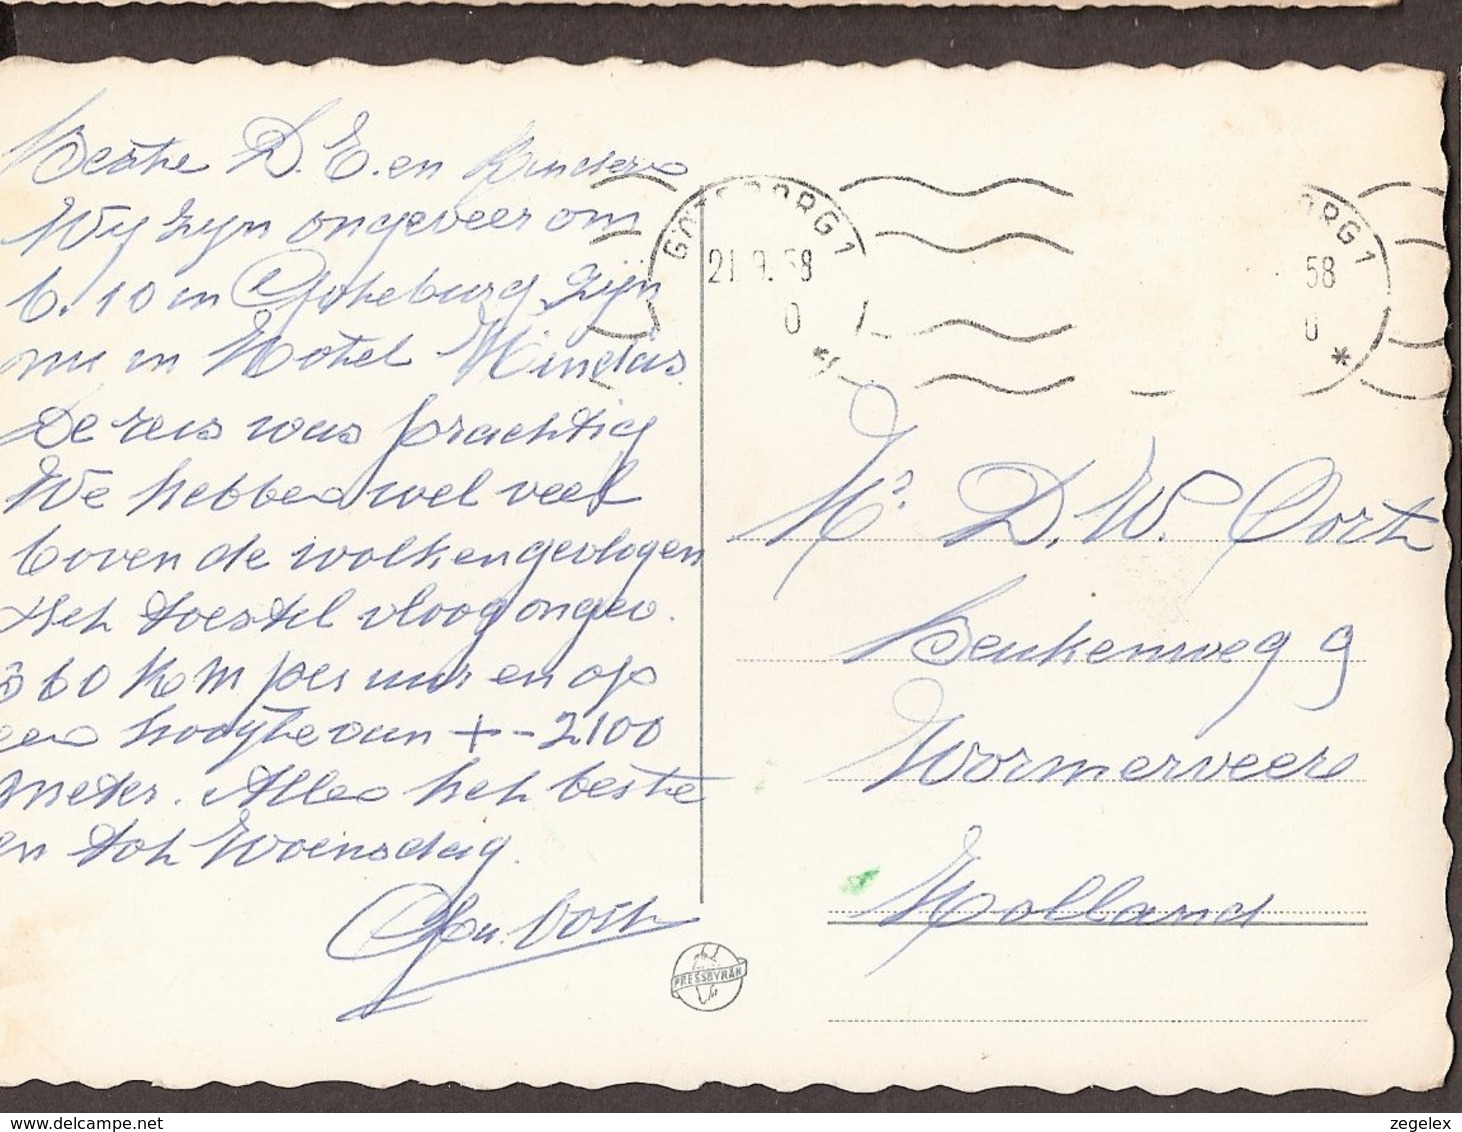 Beste D. E. en kinders
Wij zijn ongeveer om
6.10 in Gotheburg zijn
nu in Hotel
De reis was prachtig
We hebben wel veel
boven de wolken gevlogen
Het toestel vloog ongev.
360 KM per uur en op
een hoogte van + - 2100
meter. Alles het beste
en tot Woensdag.
Oort
GOTEBORG 1
21.9.58
0
*
ORG 1
58
0
*
Mr D. W. Oort
Beukenweg 9
Wormerveer
Holland
PRESSBYRÅN
delcampe.net
zegelex